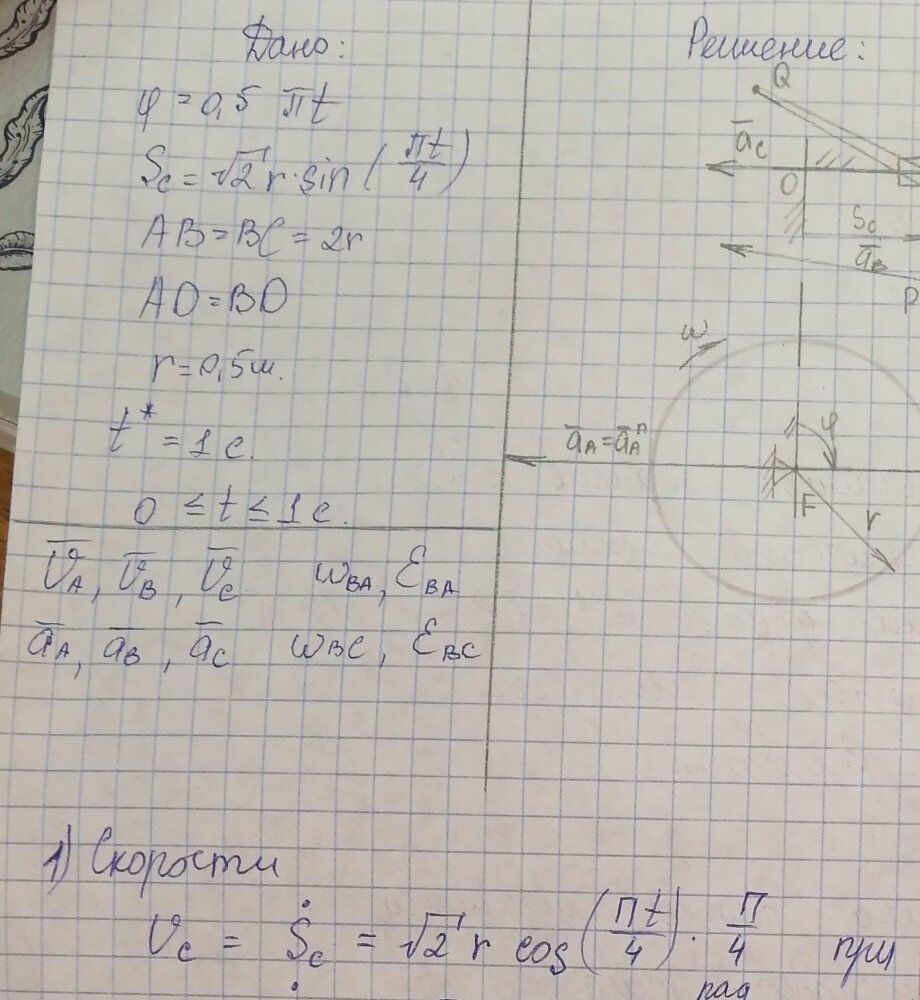 Дано:
φ = 0,5 πt
Sc = √2 r·sin(πt/4)
AB = BC = 2r
AD = BD
r = 0,5м.
t* = 1 c.
0 ≤ t ≤ 1 c.
V̅A, V̅B, V̅C ωBA, εBA
a̅A, a̅B, a̅C ωBC, εBC
Решение:
Q
a̅C
O
Sc
a̅B
P
ω
a̅A = a̅Aⁿ
φ
F
r
1) Скорости
Vc = Ṡc = √2 r cos(πt/4) · π/4 при
рад